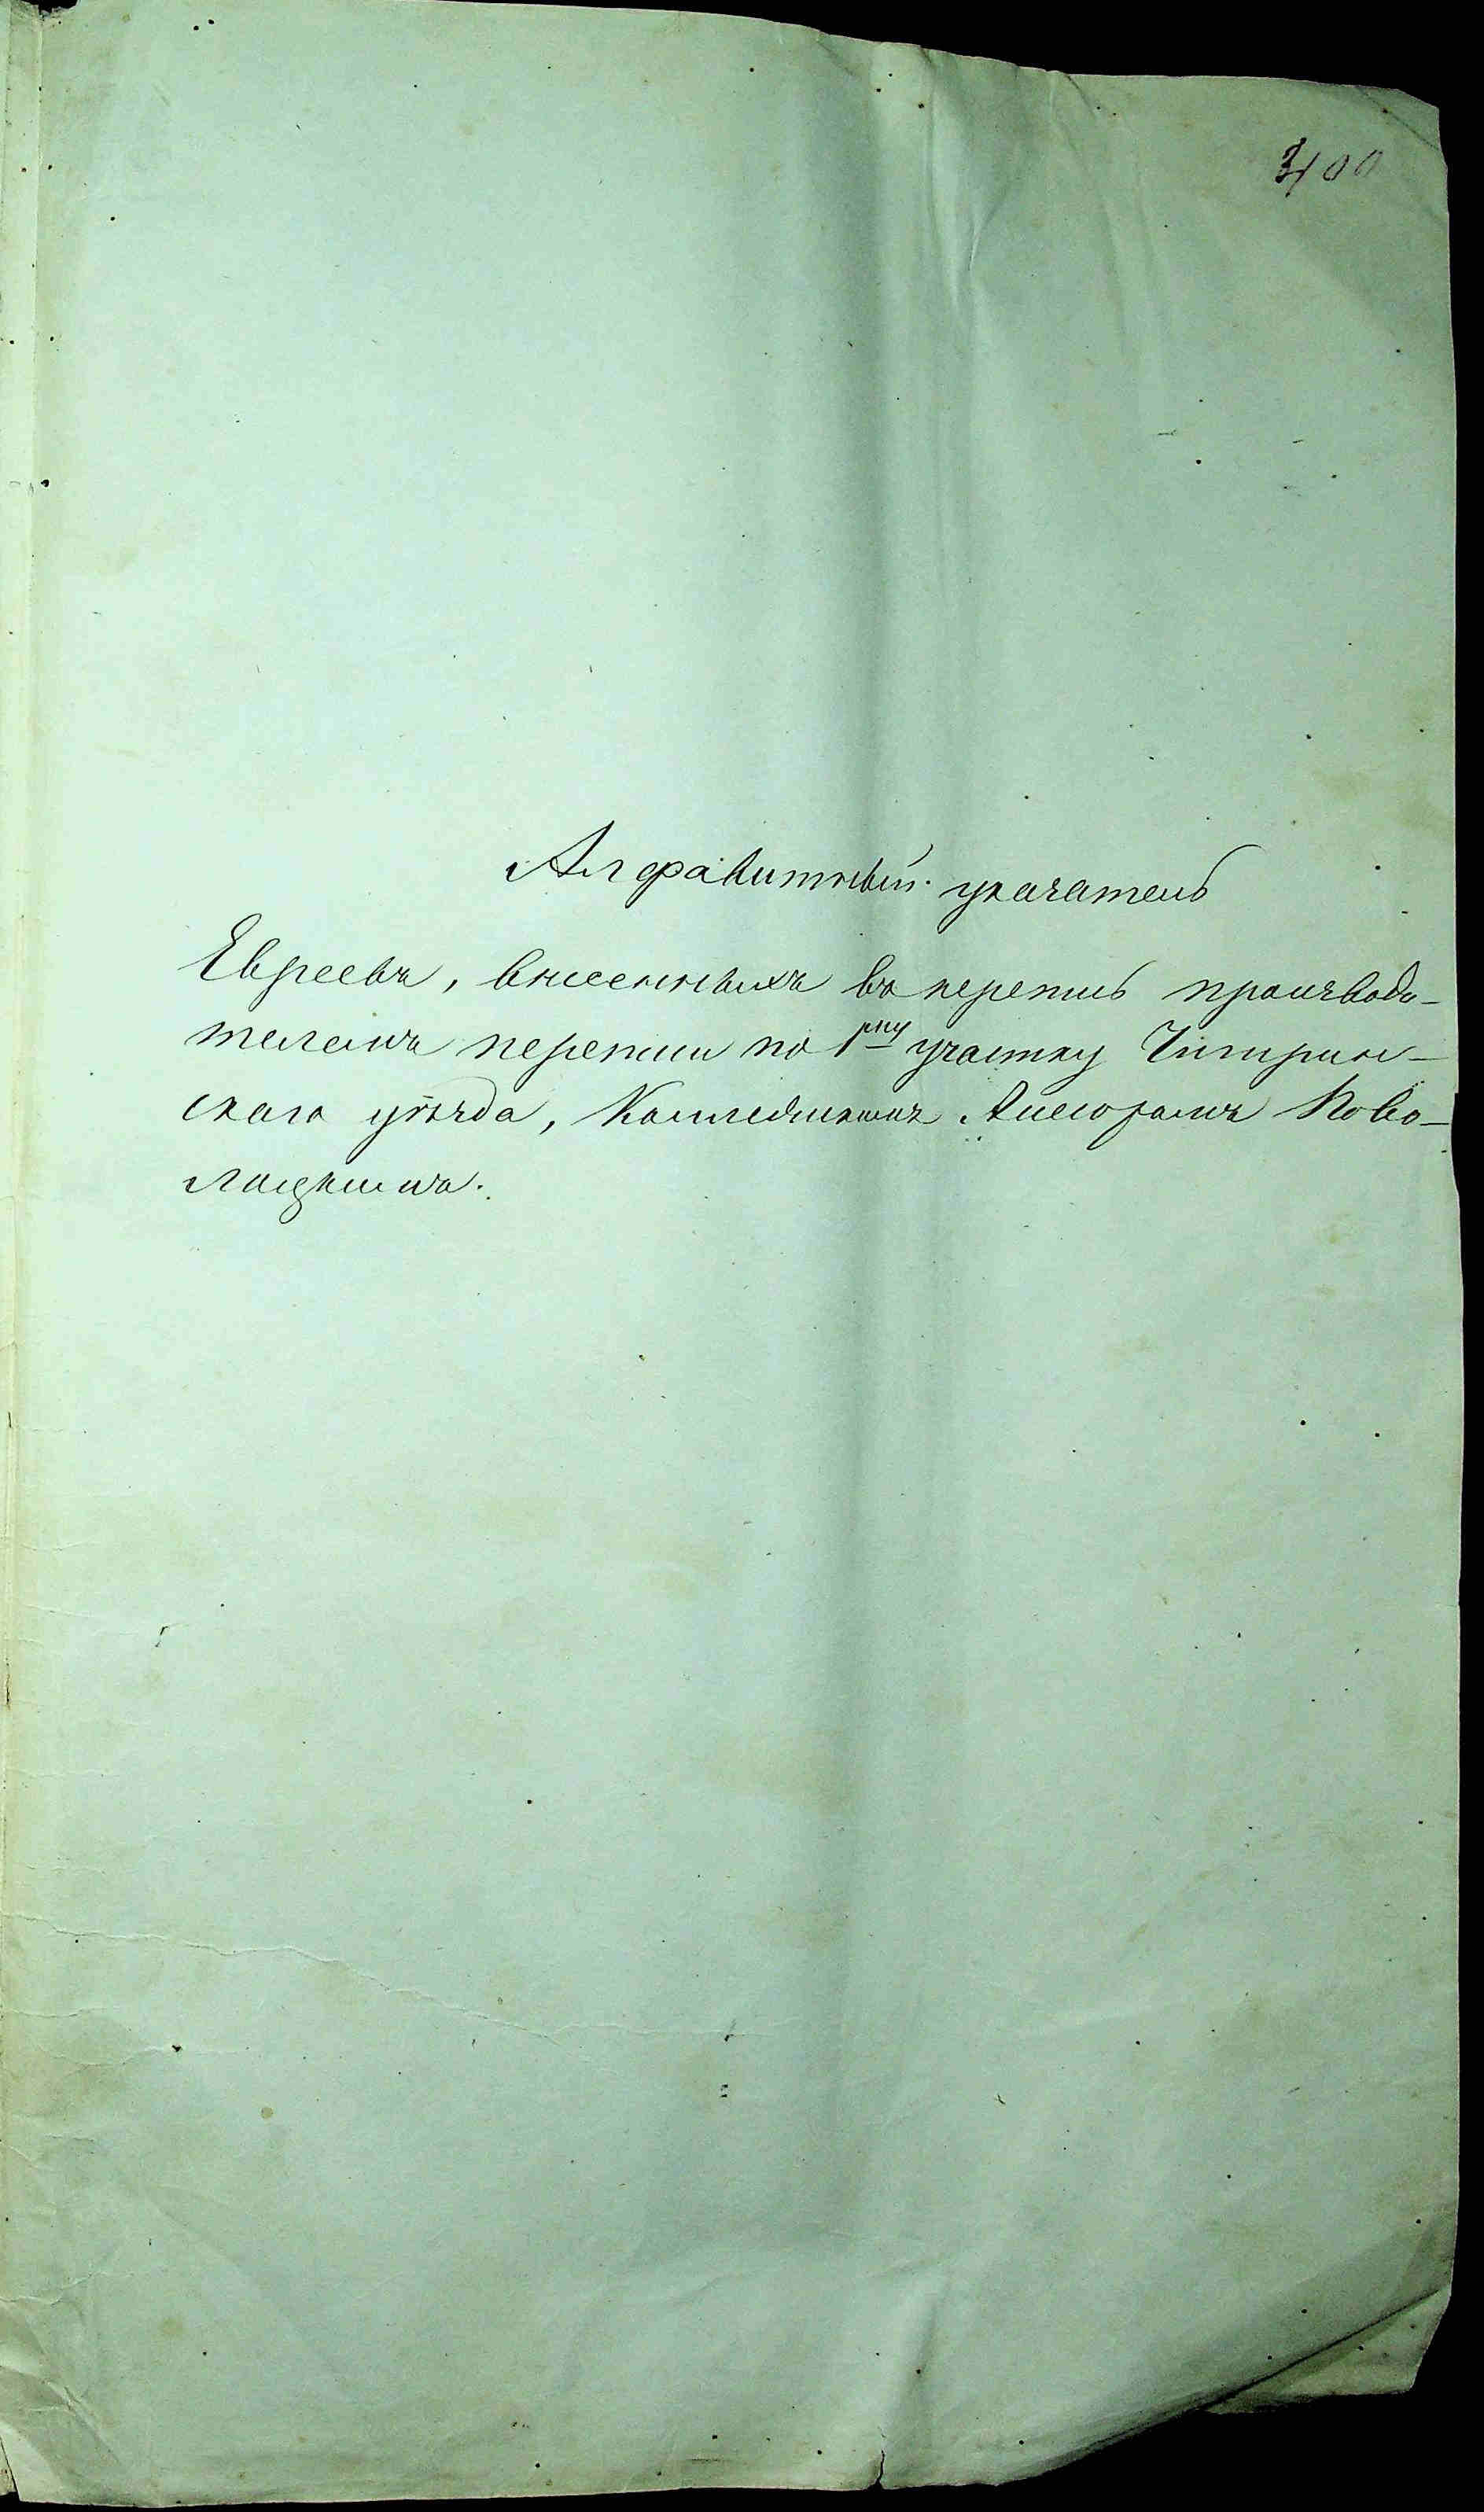 400
Алфавитный указатель
Евреевъ, внесенныхъ въ перепись производи-
телемъ переписи по 1му участку Чигирин-
скаго уѣзда, Коллежскимъ Асесоромъ Ново-
лацкимъ.